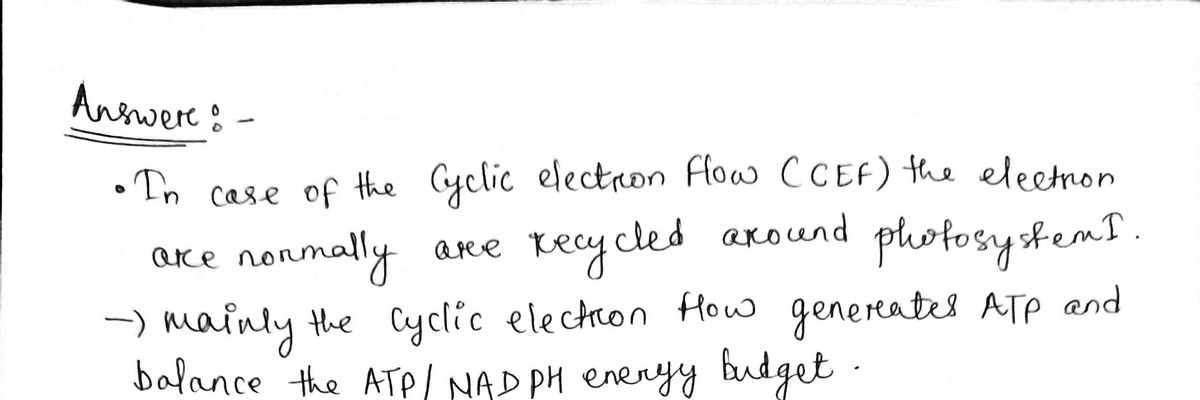 Answere :-
• In case of the Cyclic electron flow (CEF) the electron
are normally are recycled around photosystem I.
→ mainly the cyclic electron flow genereates ATP and
balance the ATP/NADPH energy budget.